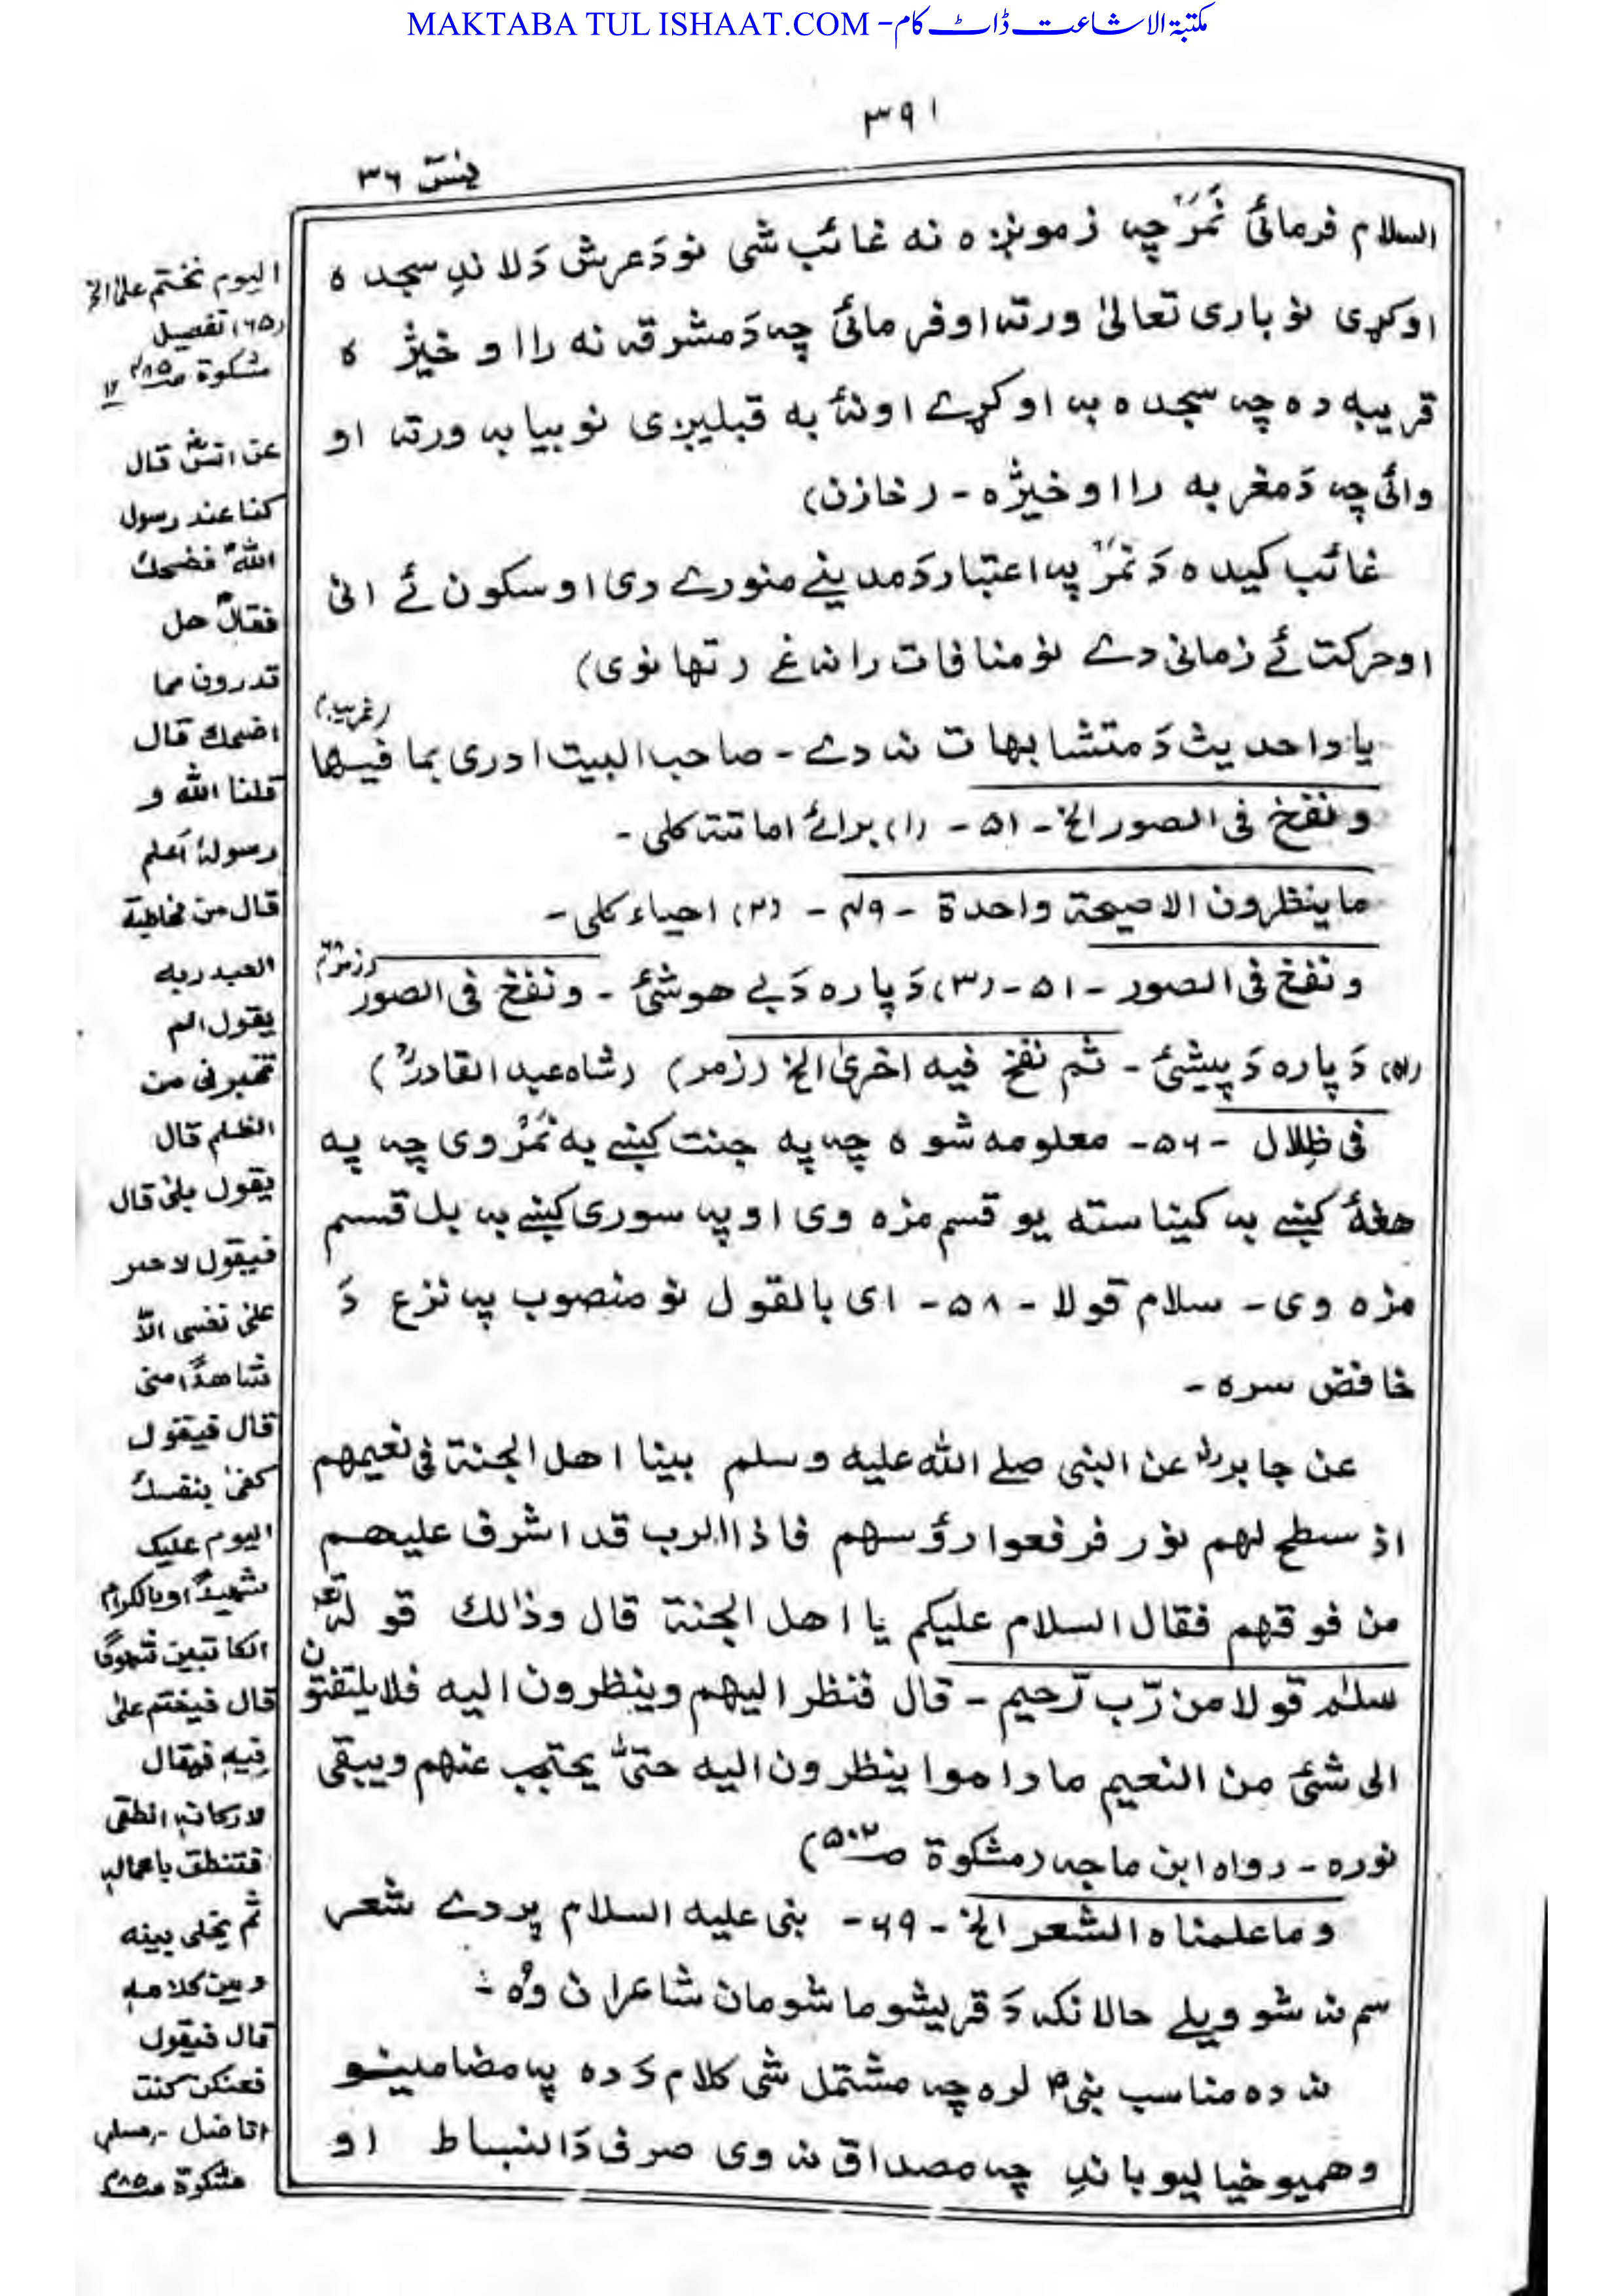 MAKTABA TUL ISHAAT.COM - مکتبۃ الاشاعت ڈاٹ کام
۳۹۱
یٰسٓ ۳۶
السلام فرمائی نمر چہ زمونږه نه غائب شی نو دَ عرش دَ لاندِ سجده
اوکړی نو باری تعالیٰ ورته اوفرمائی چہ دَ مشرقہ نه را اوخیژه
قریبه ده چہ سجده به اوکړے او نۀ به قبلیږی نو بیا به ورته او
وائی چہ دَ مغربه را اوخیژه - (خازن)
غائب کیده دَ نمر په اعتبار دَ مدینے منورے دی او سکون ئے انی
او حرکت ئے زمانی دے نو منافات رانه غے (تهانوی)
یا دا حدیث دَ متشابهات نه دے - صاحب البیت ادری بما فیها
(غریب)
ونفخ فی الصور الخ - ۵۱ - (۱) برائے اماتتہ کلی -
ما ینظرون الا صیحة واحدة - ۴۹ - (۲) احیاء کلی -
ونفخ فی الصور - ۵۱ - (۳) دَ پاره دَ بے هوشئ - ونفخ فی الصور (زمر ۶۸)
(۴) دَ پاره دَ پیشئ - ثم نفخ فیه اخریٰ الخ (زمر) (شاه عبد القادرؒ)
فی ظِلال - ۵۶ - معلومه شوه چہ په جنت کښے به نمر وی چہ په
هغۀ کښے به کیناسته یو قسم مزه وی او په سوری کښے به بل قسم
مزه وی - سلام قولا - ۵۸ - ای بالقول نو منصوب په نزع دَ
خافض سره -
عن جابرؓ عن النبی صلے الله علیه وسلم بینا اهل الجنة فی نعیمهم
اذ سطح لهم نور فرفعوا رؤسهم فاذا الرب قد اشرف علیهم
من فوقهم فقال السلام علیکم یا اهل الجنة قال وذالك قوله تعٰ
سلٰم قولا من رّب رّحیم - قال فنظر الیهم وینظرون الیه فلا یلتفتون
الی شئ من النعیم ما داموا ینظرون الیه حتیّٰ یحتجب عنهم ویبقی
نوره - رواه ابن ماجه (مشکوة صـ۵۰۲)
وما علمناه الشعر الخ - ۶۹ - نبی علیه السلام پردے شعر
سم نه شو ویلے حالانکه دَ قریشو ماشومان شاعران وُه -
نه ده مناسب نبیؐ لره چہ مشتمل شی کلام دَ ده په مضامینو
وهمیو خیالیو باندِ چہ مصداق نه وی صرف دَ انبساط او
الیوم نختم علیٰ الخ
(۶۵) تفصیل
مشکوة صـ۴۸۵ ۱۲
عن انسؓ قال
کنا عند رسول
اللهؐ فضحك
فقالؐ هل
تدرون مما
اضحك قال
قلنا الله و
رسولهٗ اَعلم
قال من مخاطبة
العبد ربه
یقول الم
تجرنی من
الظلم قال
یقول بلیٰ قال
فیقول لا اجیز
علیٰ نفسی الاّ
شاهدًا منی
قال فیقول
کفیٰ بنفسك
الیوم علیک
شهیدًا وبالکرام
الکاتبین شهودًا
قال فیختم علیٰ
فِیهِ فیقال
لارکانهٖ انطقی
فتنطق باعمالهٖ
ثم یخلی بینه
وبین کلامهٖ
قال فیقول
فعنکن کنت
اناضل - (مسلم)
مشکوة صـ۴۸۵